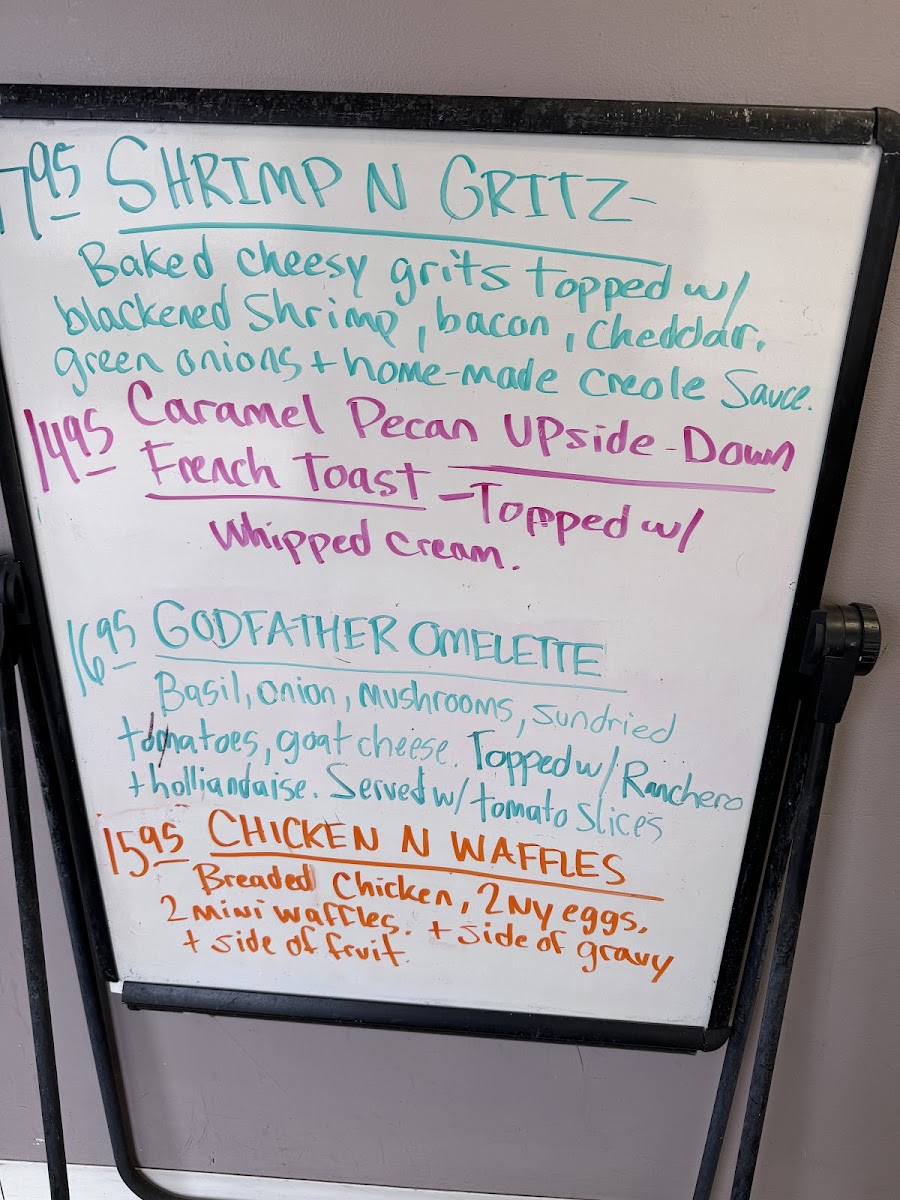 795 SHRIMP N GRITZ-
Baked cheesy grits topped w/
blackened shrimp, bacon, cheddar,
green onions + home-made creole sauce.
1495 Caramel Pecan Upside-Down
French Toast - Topped w/
Whipped cream.
1695 GODFATHER OMELETTE
Basil, onion, mushrooms, sundried
tomatoes, goat cheese. Topped w/ Ranchero
+ holliandaise. Served w/ tomato slices
1595 CHICKEN N WAFFLES
Breaded Chicken, 2 NY eggs,
2 mini waffles. + side of gravy
+ side of fruit.